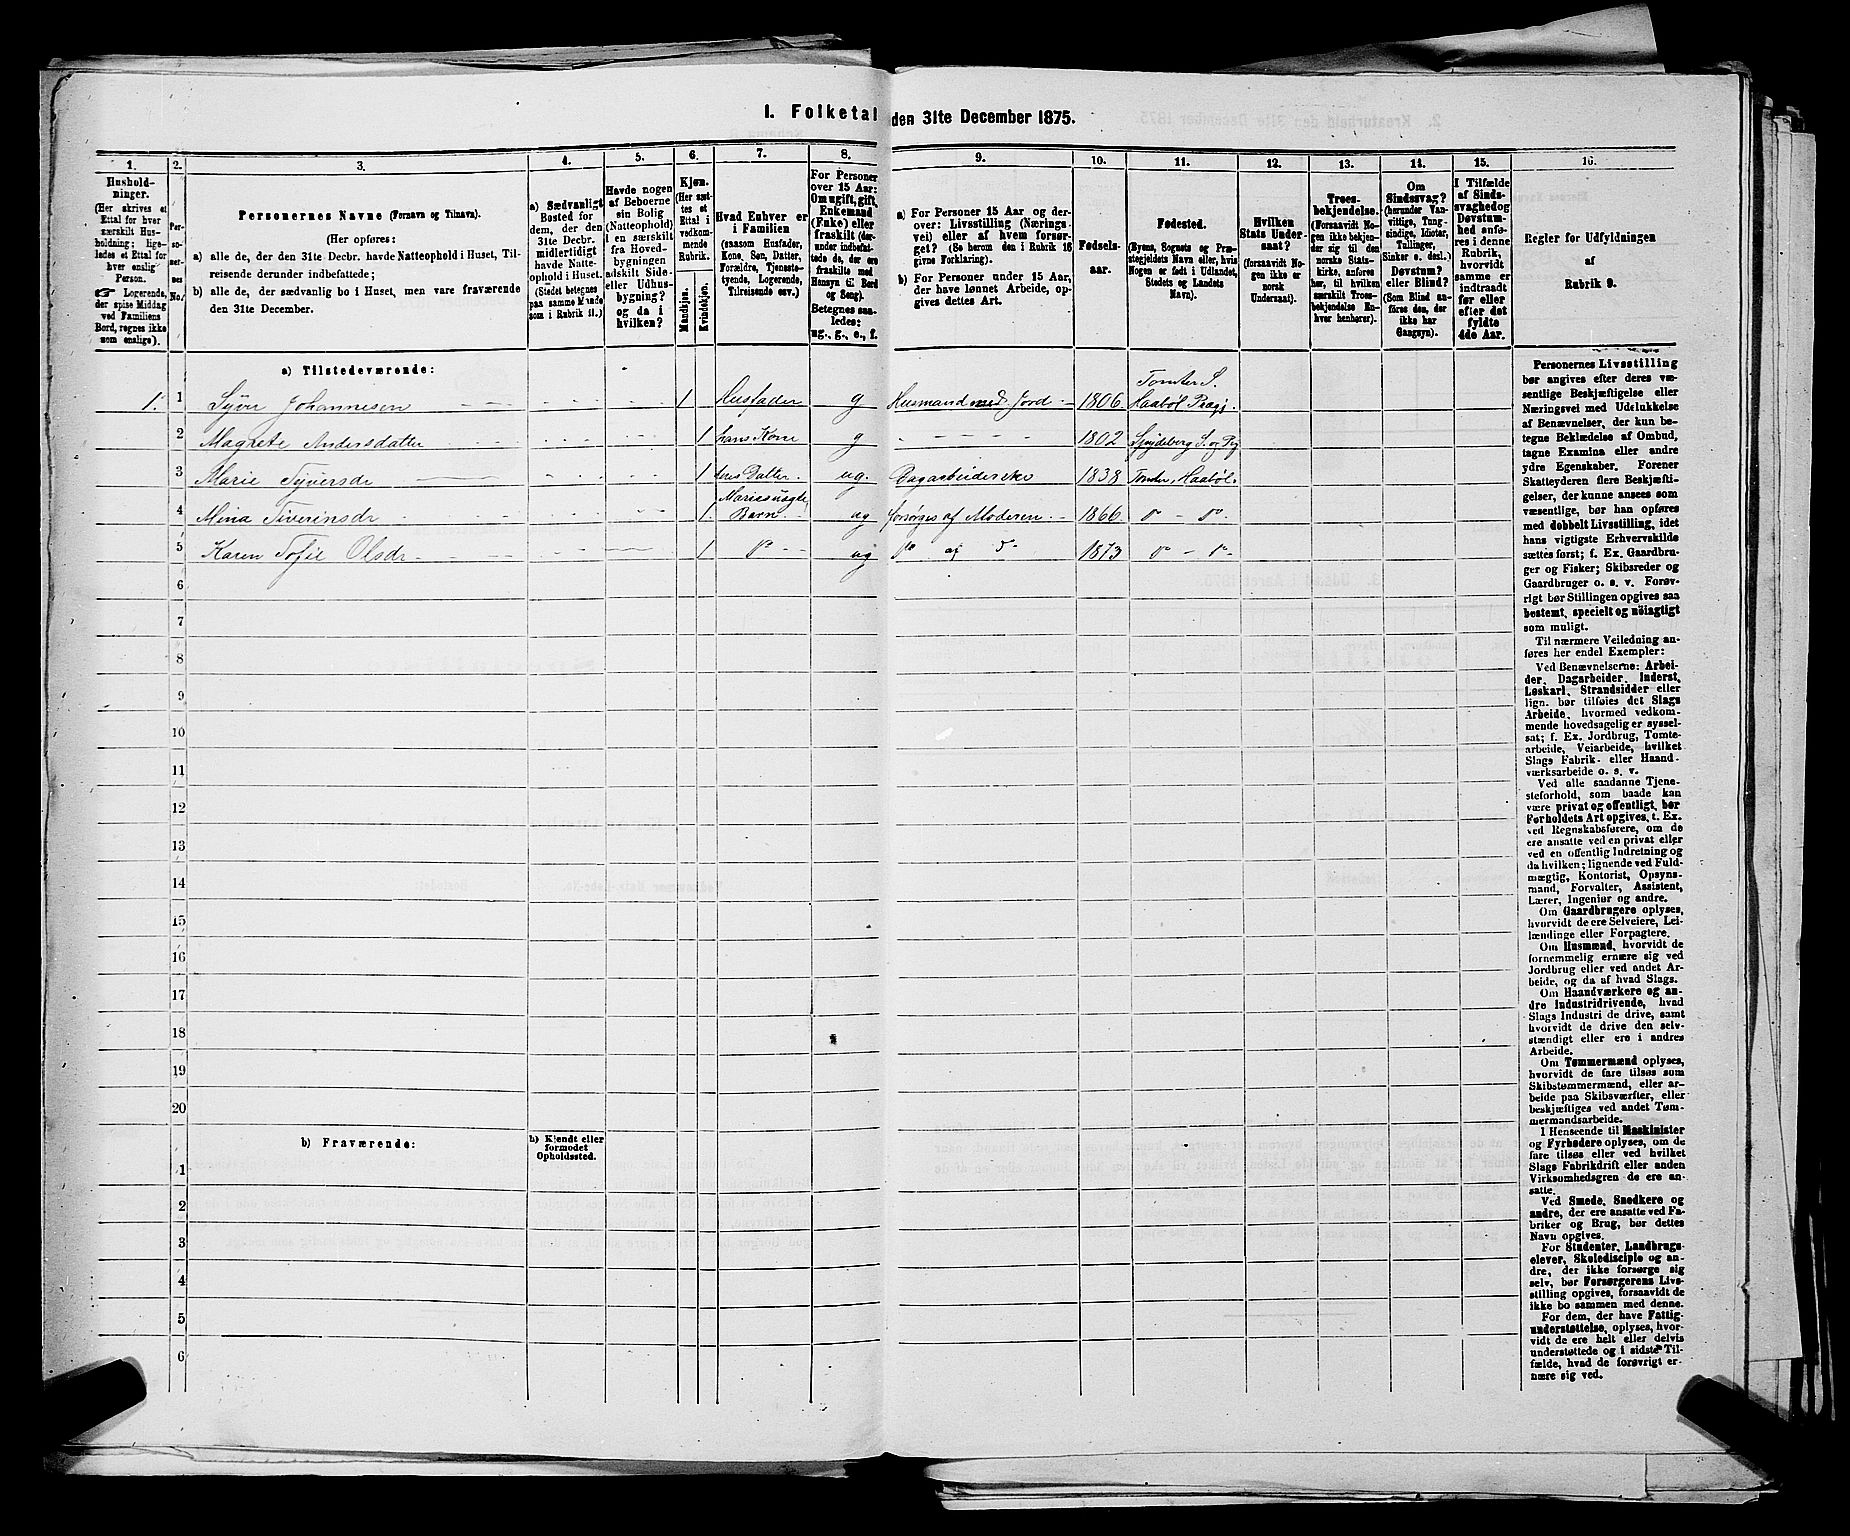 1. Folketal den 31te December 1875.
1. 2. 3. 4. 5. 6. 7. 8. 9. 10. 11. 12. 13. 14. 15. 16.
Hushold-
ninger.
(Her skrives et
Ettal for hver
særskilt Hus-
holdning; lige-
ledes et Ettal for
hver enslig
Person.
☞ Logerende,
der spise Middag
ved Familiens
Bord, regnes ikke
som enslige).
Per-
so-
ner-
nes
No.
Personernes Navne (Fornavn og Tilnavn).
(Her opføres:
a) alle de, der den 31te Decbr. havde Natteophold i Huset, Til-
reisende derunder indbefattede;
b) alle de, der sædvanlig bo i Huset, men vare fraværende
den 31te December.
a) Sædvanligt
Bosted for
dem, der den
31te Decbr.
midlertidigt
havde Natte-
ophold i Huset.
(Stedet betegnes
paa samme Maade
som i Rubrik 11.)
Havde nogen
af Beboerne
sin Bolig
(Natteophold)
i en særskilt
fra Hoved-
bygningen
adskilt Side-
eller Udhus-
bygning?
og da i
hvilken?
Kjøn.
(Her sæt-
tes et
Ettal i
vedkom-
mende
Rubrik.
Mandkjøn.
Kvindekjøn.
Hvad Enhver er
i Familien
(saasom Husfader,
Kone, Søn, Datter,
Forældre, Tjeneste-
tyende, Logerende,
Tilreisende osv.)
For Personer
over 15 Aar:
Om ugift, gift,
Enkemand
(Enke) eller
fraskilt (der-
under indbefat-
tede de, der ere
fraskilte med
Hensyn til Bord
og Seng).
Betegnes saa-
ledes:
ug., g., e., f.
a) For Personer 15 Aar og der-
over: Livsstilling (Nærings-
vei) eller af hvem forsør-
get? (Se herom den i Rubrik 16
givne Forklaring).
b) For Personer under 15 Aar,
der have lønnet Arbeide, op-
gives dettes Art.
Fødsels-
aar.
Fødested.
(Byens, Sognets og Præ-
stegjeldets Navn eller, hvis
Nogen er født i Udlandet,
Stedets og Landets
Navn).
Hvilken
Stats Under-
saat?
(forsaavidt No-
gen ikke er
norsk
Undersaat).
Troes-
bekjendelse.
(Forsaavidt No-
gen ikke bekjen-
der sig til den
norske Stats-
kirke, anføres
her, til hvilken
særskilt Troes-
bekjendelse En-
hver henhører).
Om
Sindssvag?
(herunder Van-
vittige, Tung-
sindige, Idioter,
Tullinger,
Sinker o. desl.)
Døvstum?
eller Blind?
(Som Blind an-
føres den, der
ikke har
Gangsyn).
I Tilfælde
af Sinds-
svaghed og
Døvstum-
hed anfø-
res i denne
Rubrik,
hvorvidt
samme er
indtraadt
før eller
efter det
fyldte
4de Aar.
Regler for Udfyldningen
af
Rubrik 9.
a) Tilstedeværende:
Tomter S.
1. 1 Syver Johannesen 1 Husfader g Husmand med Jord 1806 Haabøl Præg.
2 Magrete Andersdatter 1 hans Kone g 1802 Spydeberg S. og Pg
3 Marie Syversdr 1 deres Datter ug. Dagarbeiderske 1838 Tomter, Haabøl
Maries uægte
4 Mina Siverinsdr 1. Barn ug forsørges af Moderen 1866 do - do
5 Karen Sofie Olsdr 1 do ug do af do 1873 do - do
6
7
8
9
10
11
12
13
14
15
16
17
18
19
20
b) Fraværende:
b) Kjendt eller
formodet
Opholdssted.
1
2
3
4
5
6
Personernes Livsstilling
bør angives efter deres væ-
sentlige Beskjæftigelse eller
Næringsvei med Udelukkelse
af Benævnelser, der kun be-
tegne Beklædelse af Ombud,
tagne Examina eller andre
ydre Egenskaber. Forener
Skatteyderen flere Beskjæfti-
gelser, der kunne ansees som
væsentlige, bør han opføres
med dobbelt Livsstilling, idet
hans vigtigste Erhvervskilde
sættes først; f. Ex. Gaardbru-
ger og Fisker; Skibsreder og
Gaardbruger o. s. v. Forøv-
rigt bør Stillingen opgives saa
bestemt, specielt og nøiagtigt
som muligt.
Til nærmere Veiledning an-
føres her endel Exempler:
Ved Benævnelserne: Arbei-
der, Dagarbeider, Inderst,
Løskarl, Strandsidder eller
lign. bør tilføies det Slags
Arbeide, hvormed vedkom-
mende hovedsagelig er syssel-
sat; f. Ex. Jordbrug, Tomte-
arbeide, Veiarbeide, hvilket
Slags Fabrik- eller Haand-
værksarbeide o. s. v.
Ved alle saadanne Tjene-
steforhold, som baade kan
være privat og offentligt, bør
Forholdets Art opgives, t. Ex.
ved Regnskabsførere, om de
ere ansatte ved en privat eller
ved en offentlig Indretning og
da hvilken; lignende ved Fuld-
mægtig, Kontorist, Opsyns-
mand, Forvalter, Assistent,
Lærer, Ingeniør og andre.
Om Gaardbrugere oplyses,
hvorvidt de ere Selveiere, Lei-
lændinge eller Forpagtere.
Om Husmænd, hvorvidt de
fornemmelig ernære sig ved
Jordbrug eller ved andet Ar-
beide, og da af hvad Slags.
Om Haandværkere og an-
dre Industridrivende, hvad
Slags Industri de drive, samt
hvorvidt de drive den selv-
stændigt eller ere i andres
Arbeide.
Om Tømmermænd oplyses,
hvorvidt de fare tilsøs som
Skibstømmermænd, eller ar-
beide paa Skibsværfter, eller
beskjæftiges ved andet Tøm-
mermandsarbeide.
I Henseende til Maskinister
og Fyrbødere oplyses, om de
fare tilsøs eller ved hvilket
Slags Fabrikdrift eller anden
Virksomhedsgren de ere an-
satte.
Ved Smede, Snedkere og
andre, der ere ansatte ved Fa-
briker og Brug, bør dettes
Navn opgives.
For Studenter, Landbrugs-
elever, Skoledisciple og an-
dre, der ikke forsørge sig
selv, bør Forsørgerens Livs-
stilling opgives, forsaavidt de
ikke bo sammen med denne.
For dem, der have Fattig-
understøttelse, oplyses, hvor-
vidt de ere helt eller delvis
understøttede og i sidste Til-
fælde, hvad de forøvrigt er-
nære sig ved.